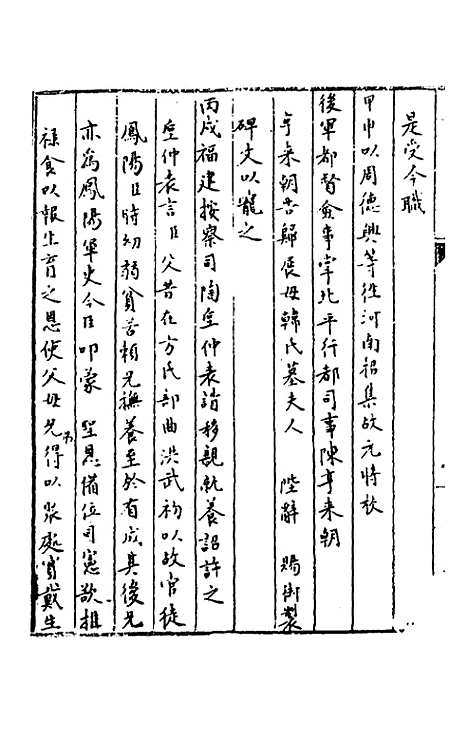 是受今職
甲申以周德興等往河南招集故元將校
後軍都督僉事掌北平行都司事陳亨來朝
亨來朝告歸展母韓氏墓夫人　陛辭　賜御製
碑文以寵之
丙戌福建按察司陶垕仲表請移親就養詔許之
垕仲表言臣父昔在方氏部曲洪武初以故官徒
鳳陽臣時幼弱貧苦賴兄撫養至於有成其後兄
亦為鳳陽軍吏今臣叨蒙　聖恩備位司憲欲推
祿食以報生育之恩使父母兄弟得以聚處實戴生